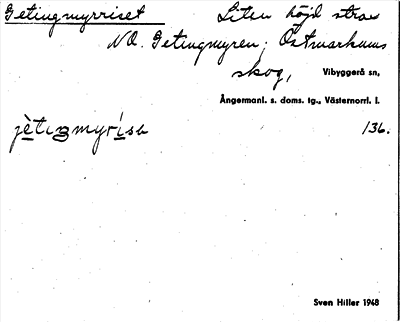 Getingmyrriset Liten höjd strax
NO. Getingmyren; Östmarkums
skog, Vibyggerå sn,
Ångermanl. s. doms. tg., Västernorrl. l.
jètiŋmyrísə 136.
Sven Hiller 1948